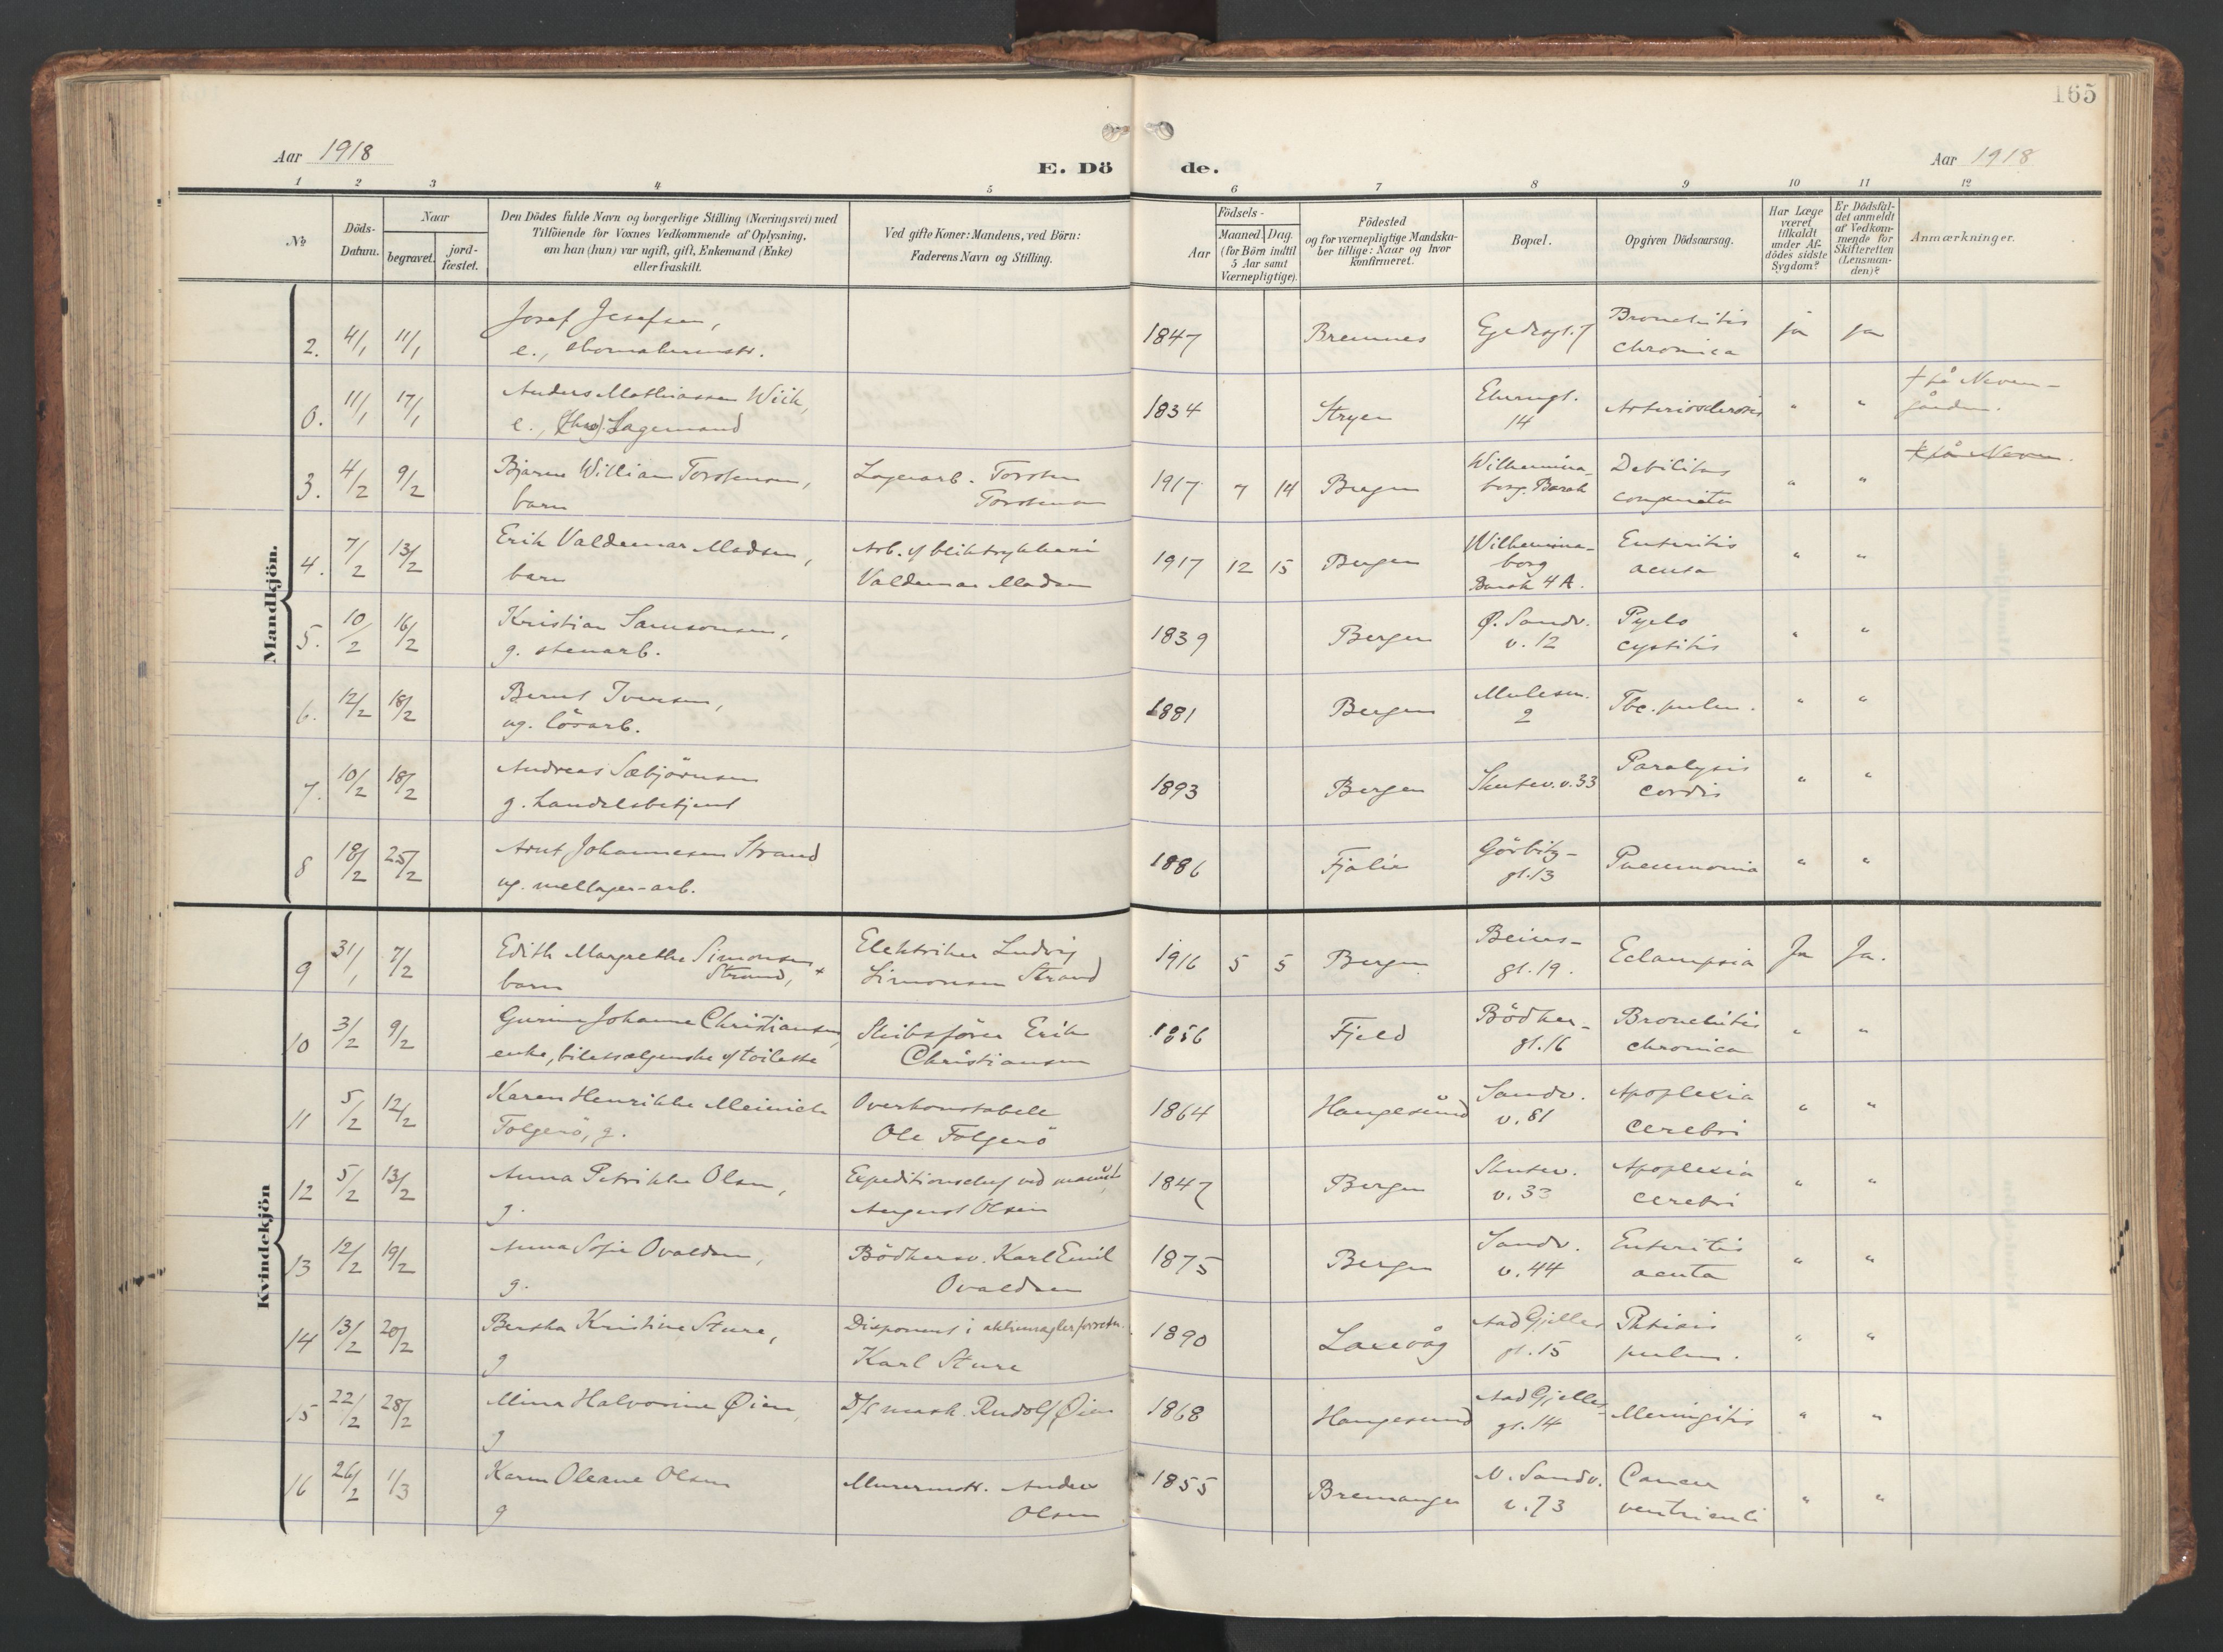 165
Aar 1918
E. Dö de.
Aar 1918
1 2 3 4 5 6 7 8 9 10 11 12
№
Döds-
Datum.
Naar
begravet.
jord-
fæstet.
Den Dödes fulde Navn og borgerlige Stilling (Næringsvei) med
Tilföiende for Voxnes Vedkommende af Oplysning,
om han (hun) var ugift, gift, Enkemand (Enke)
eller fraskilt.
Ved gifte Koner: Mandens, ved Börn:
Faderens Navn og Stilling.
Födsels-
Aar
Maaned. Dag.
(for Börn indtil
5 Aar samt
Værnepligtige).
Födested
og for værnepligtige Mandska-
ber tillige: Naar og hvor
konfirmeret.
Bopæl.
Opgiven Dödsaarsag.
Har Læge
været
tilkaldt
under Af-
dödes sidste
Sygdom?
Er Dödsfal-
det anmeldt
af Vedkom-
mende for
Skifteretten
(Lensman-
den)?
Anmærkninger.
Mandkjön.
2. 4/1 11/1 Josef Josefsen, 1847 Bremnes Bronchitis ja ja
chronica
0. 11/1 17/1 Anders Mathiassen Wiik, 1834 Stryen 14 Arteriosclerosis " "
3. 4/2 9/2 Bjarne William Torstensen, Lagerarb. Torsten 1917 7 14 Bergen Wilhelmina- Debilitas " "
barn Torstensen borg. Barak congenita
4. 7/2 13/2 Erik Valdemar Madsen, Arb. v/ bliktrykkeri 1917 12 15 Bergen Wilhelmina- Enteritis " "
barn Valdemar Madsen borg acuta
Barak 4 A.
5. 10/2 16/2 Kristian Samsonsen, 1839 Bergen Ø. Sandv. Pyelo " "
g. stenarb. v. 12 cystitis
6. 12/2 18/2 Bernt Iversen, 1881 Bergen Mulesm. Tbc. pulm. " "
ug. lösarb. 2
7. 10/2 18/2 Andreas Sæbjörnsen 1893 Bergen Skutev. v. 33 Paralysis " "
g. handelsbetjent cordis
8 18/2 25/2 Arnt Johannesen Strand 1886 Fjaler Görbitz- Pneumonia " "
ug. mellager-arb. gt. 13
Kvindekjön
9 31/1 7/2 Edith Margrethe Simonsen Elektriker Ludvig 1916 5 5 Bergen gt. 19. Eclampsia Ja Ja.
barn Strand, Simonsen Strand
10 3/2 9/2 Gurine Johanne Christiansen, Skibsförer Erik 1856 Fjeld Bödker- Bronchitis " "
enke, biletsælgerske v/ toilette Christiansen gt. 16 chronica
11 5/2 12/2 Karen Henrikke Meinich Overkonstabel 1864 Haugesund Sandv. Apoplexia " "
Folgerö, g. Ole Folgerö v. 81 cerebri
12 5/2 13/2 Anna Petrikke Olsen, 1847 Bergen Skutev. Apoplexia " "
g. August Olsen v. 33 cerebri
13 12/2 19/2 Anna Sofie Ovaldsen, Bödkersv. Karl Emil 1875 Bergen Sandv. Enteritis " "
g. Ovaldsen v. 44 acuta
14 13/2 20/2 Bertha Kristine Sture, Disponent i 1890 Laxevåg Aad Gjelles Phtisis " "
g Karl Sture gt. 15 pulm.
15 22/2 28/2 Mina Halvorine Øien, D/s mask. Rudolf Øien 1868 Haugesund Aad Gjelles Meningitis " "
g gt. 14
16 26/2 1/3 Karen Oleane Olsen Murermstr. Anders 1855 Bremanger N. Sandv. Cancer " "
g Olsen v. 73 ventriculi